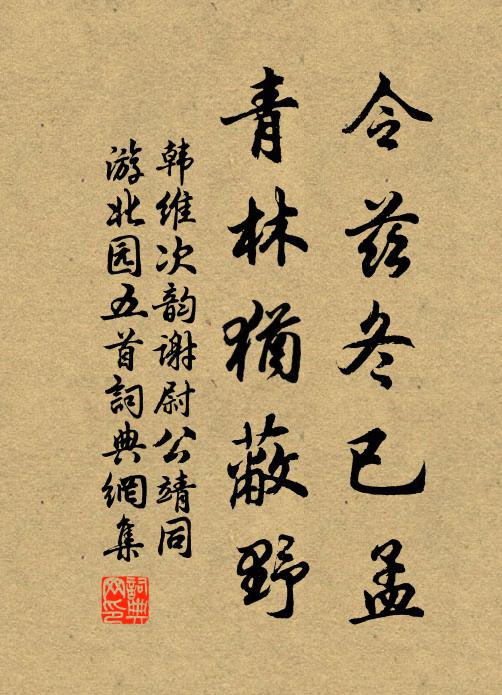 令兹冬已孟
青林犹蔽野
韩维次韵谢尉公靖同
游北园五首詞典網集
詞典网印